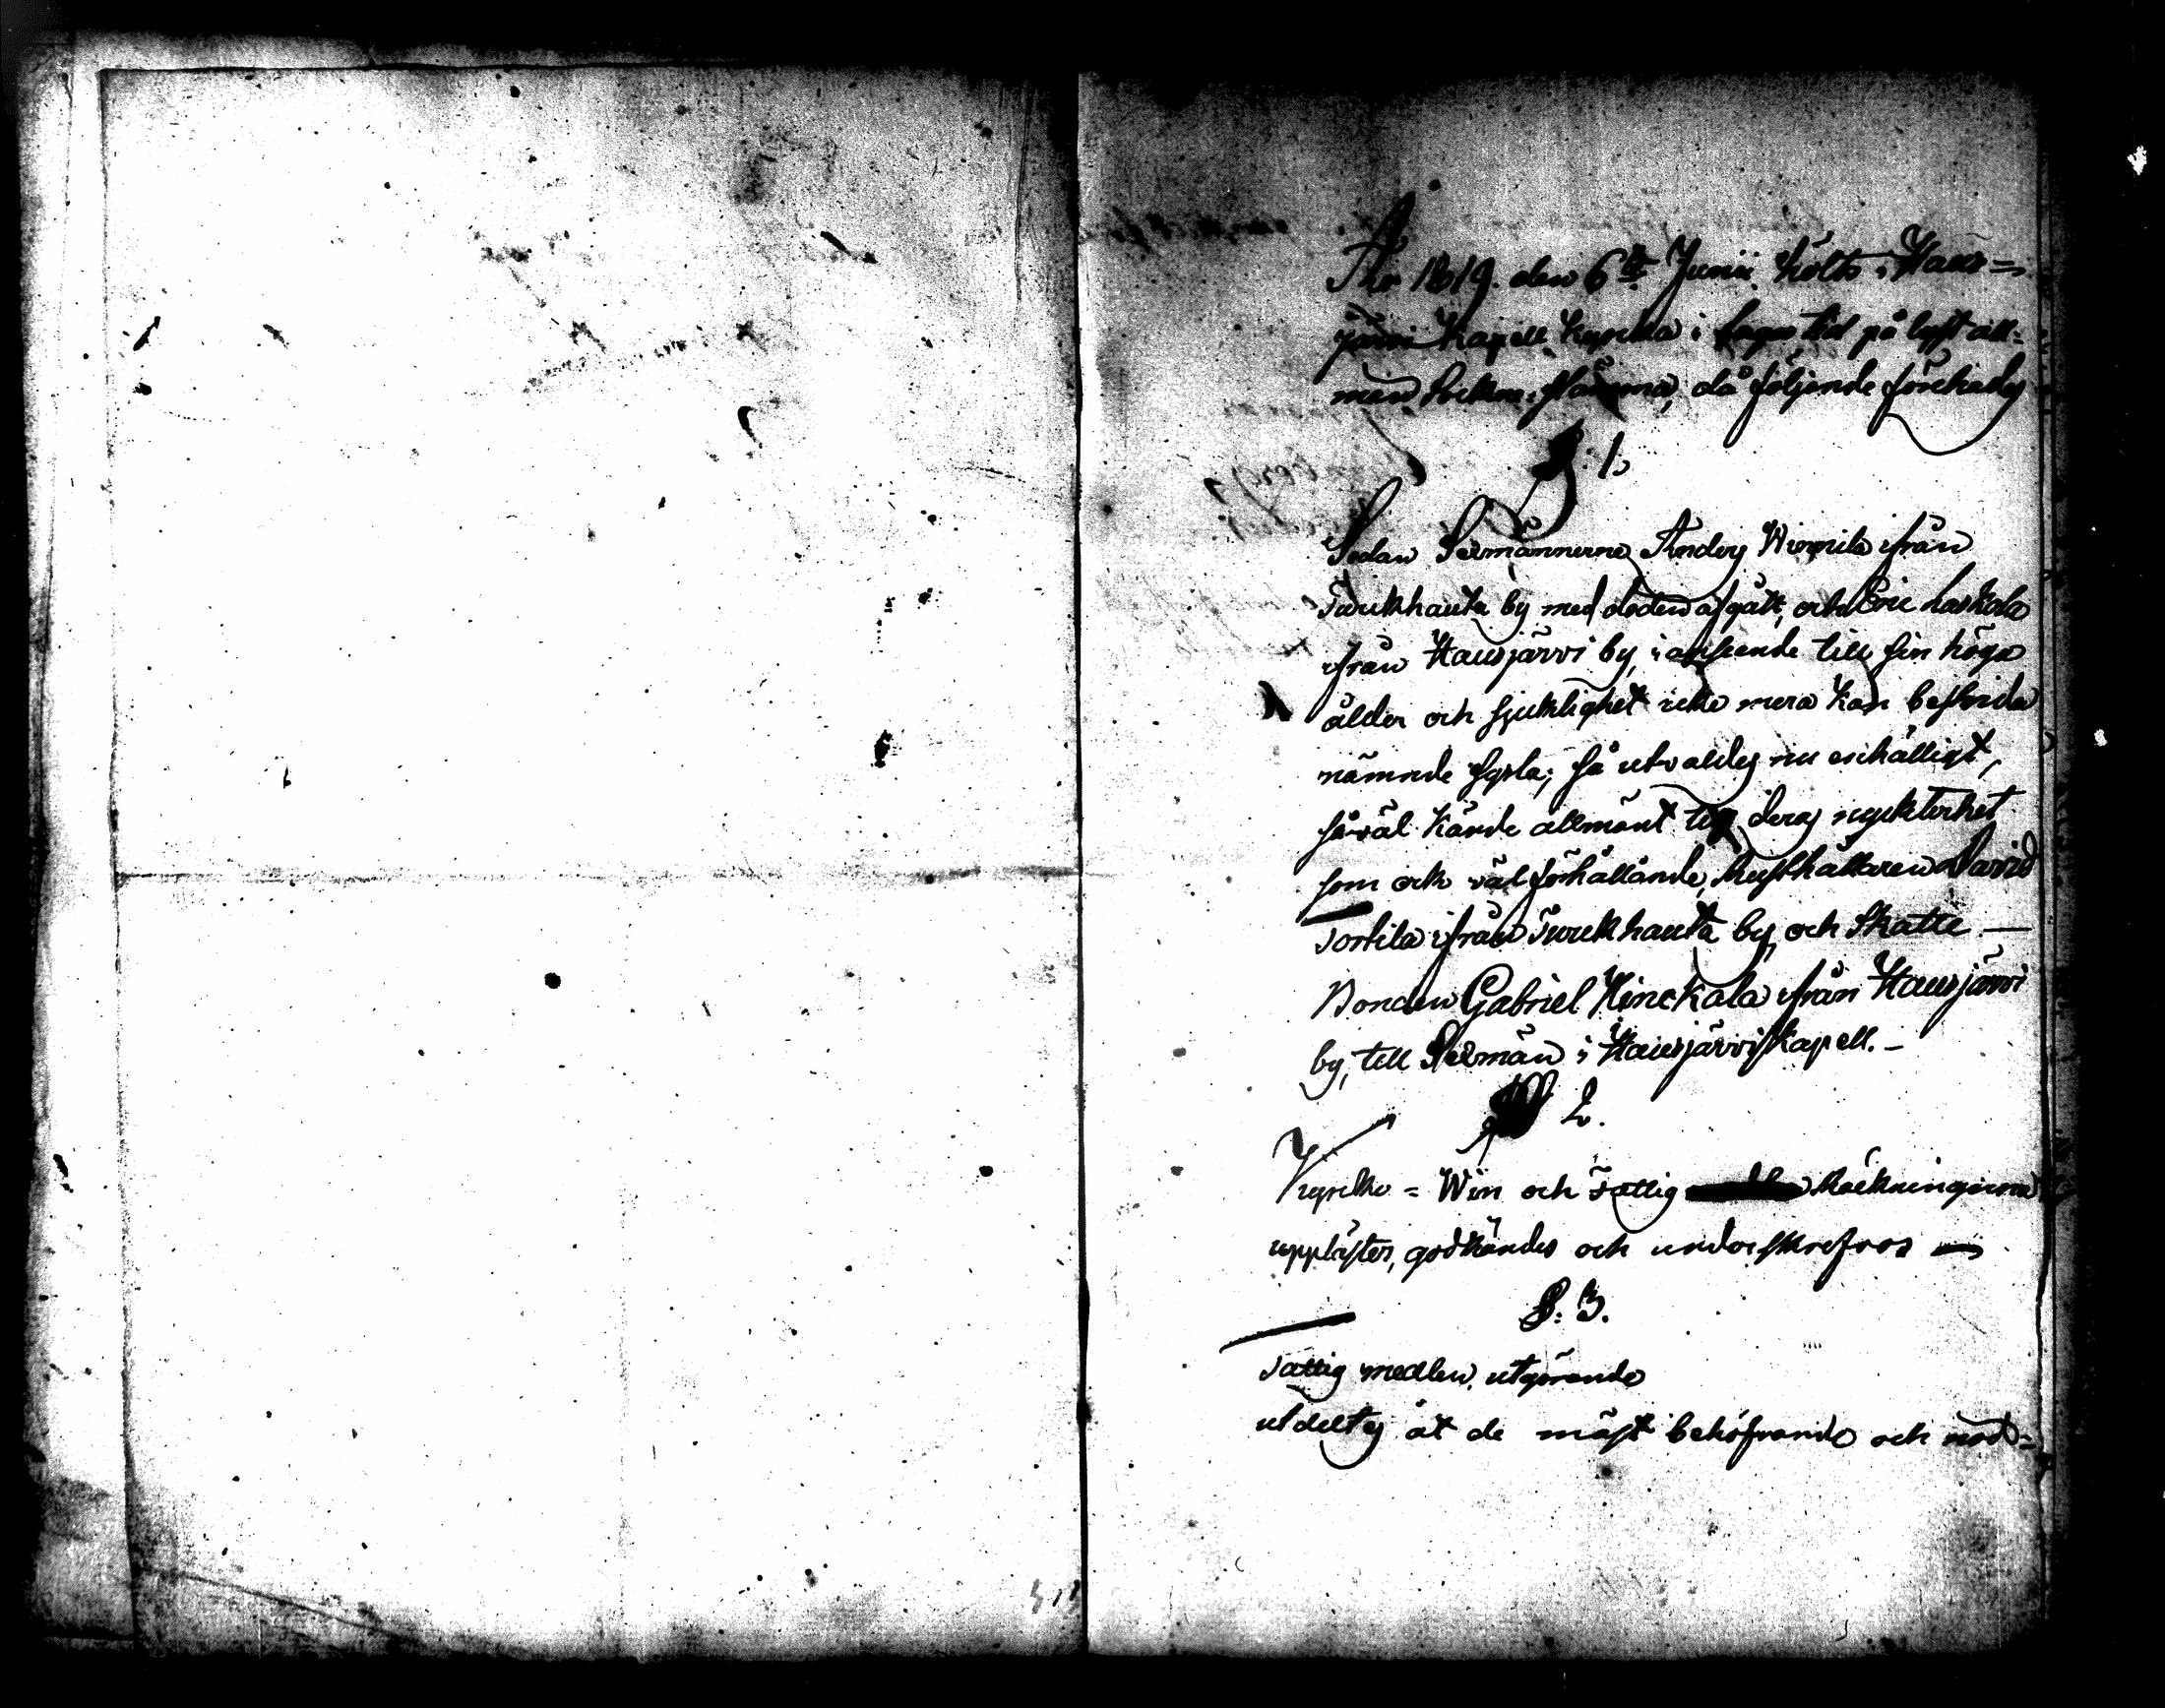 A:o 1819. den 6:te Junii hölts i Haus=
järvi Kapell Kyrka i laga tid på lyst all=
män Sockne-Stämma, då följande förehades
§. 1.
Sedan Sexmännerne Anders Wirmila ifrån
Turckhauta by med döden afgått, och Eric Laskala
ifrån Hausjärvi by, i anseende till sin höga
ålder och sjuklighet icke mera kan bestrida
nämnde sysla; så utvaldes nu enhälligt,
såväl kände allmänt till deras nyckterhet
som ock välförhållande, Rusthållaren David
Tortila ifrån Turckhauta by, och Skatte
Bonden Gabriel Hinckala ifrån Hausjärvi
by, till Sexmän i Hausjärvi Kapell.
§ 2.
Kyrcko= Win och Fattig Räkningarne
upplästes, godkändes och underskrefvos
§: 3.
Fattig medlen, utgörande
utdeltes åt de mäst behöfvande och nöd=